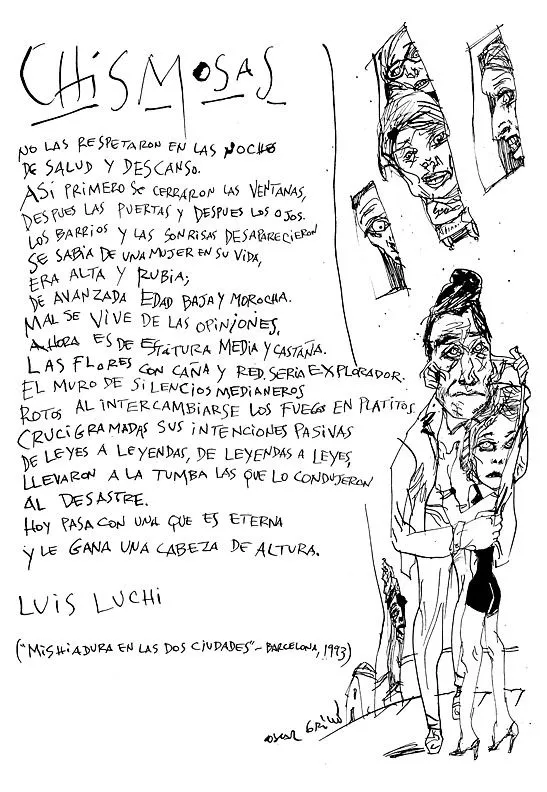 CHISMOSAS
NO LAS RESPETARON EN LAS NOCHE
DE SALUD Y DESCANSO.
ASI PRIMERO SE CERRARON LAS VENTANAS,
DESPUES LAS PUERTAS Y DESPUES LOS OJOS.
LOS BARRIOS Y LAS SONRISAS DESAPARECIERON
SE SABIA DE UNA MUJER EN SU VIDA,
ERA ALTA Y RUBIA;
DE AVANZADA EDAD BAJA Y MOROCHA.
MAL SE VIVE DE LAS OPINIONES,
AHORA ES DE ESTATURA MEDIA Y CASTAÑA.
LAS FLORES CON CAÑA Y RED. SERIA EXPLORADOR.
EL MURO DE SILENCIOS MEDIANEROS
ROTOS AL INTERCAMBIARSE LOS FUEGOS EN PLATITOS.
CRUCIGRAMADAS SUS INTENCIONES PASIVAS
DE LEYES A LEYENDAS, DE LEYENDAS A LEYES,
LLEVARON A LA TUMBA LAS QUE LO CONDUJERON
AL DESASTRE.
HOY PASA CON UNA QUE ES ETERNA
Y LE GANA UNA CABEZA DE ALTURA.
LUIS LUCHI
("MISHIADURA EN LAS DOS CIUDADES" - BARCELONA, 1993)
OSCAR GRILLO